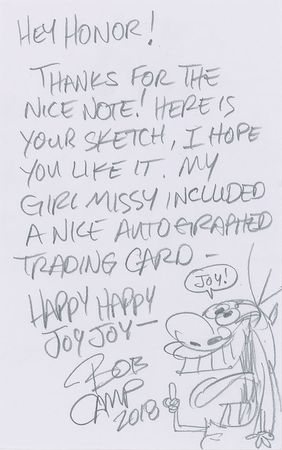 HEY HONOR!
THANKS FOR THE
NICE NOTE! HERE IS
YOUR SKETCH, I HOPE
YOU LIKE IT. MY
GIRL MISSY INCLUDED
A NICE AUTOGRAPHED
TRADING CARD —
HAPPY HAPPY
JOY JOY —
JOY!
BOB
CAMP
2018